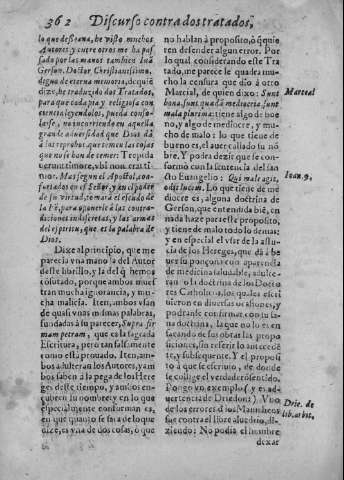 362 Discurso contra dos tratados,
lo que desseaua, he visto muchos
Autores y entre otros me ha pas
sado por las manos tambien Iuã
Gerson, Doctor Christianissimo,
digno de eterna memoria, de quiẽ
dize, he traduzido dos Tratados,
para que todo pia y religiosa con
ciencia leyendolos, pueda conso-
larse, no incurriendo en aquella
grande aduersidad que Dios dà
à los reprobos que temen las cosas
que no se han de temer: Trepida
uerunt timore, vbi non erat ti-
mor. Mas segun el Apostol, con-
fortados en el Señor, y en el poder
de su virtud, tomarà el escudo de
la Fè, para oponerle à las contra-
diciones indiscretas, y las armas
del espiritu, que es la palabra de
Dios.
Dixe al principio, que me
parecia vna mano la del Autor
deste librillo, y la del q̃ hemos
cõfutado, porque ambos mues
tran mucha ignorancia, y mu-
cha malicia. Item, ambos vsan
de quasi vnas mismas palabras,
fundadas à su parecer, Supra fir
mam petram, que es la sagrada
Escritura, pero tan falsamente
como està prouado. Item, am-
bos adulteran los Autores, y am
bos saben à la pega de los Here
ges deste tiempo, y ambos en-
cubren su nombre: y en lo que
especialmente conforman es,
en que quanto se saca de lo que
dize, es vna de dos cosas, ò que
no hablan à proposito, ò q̃ quie
ren defender algun error. Por
lo qual considerando este Tra
tado, me parece le quadra mu-
cho la censura que dio à otro
Marcial, de quien dixo: Sunt
bona, sunt quædã mediocria, sunt
mala plurima: tiene algo de bue
no, y algo de mediocre, y mu-
cho de malo: lo que tiene de
bueno es, el auer callado su nõ
bre. Y podra dezir que se con-
formò con la sentencia del san
cto Euangelio: Qui male agit,
odit lucem. Lo que tiene de me
diocre es, alguna doctrina de
Gerson, que entendida bié, en
nada haze para este proposito,
y tiene de malo todo lo demas:
y en especial el vsar de la astu-
cia de los Hereges, que dà à be
uer su ponçoña con aparencia
de medicina saludable, adulce-
ran lo la doctrina de los Docto
res Catholicos, los quales escri
uieron en diuersas ocasiones, y
podran se conformar con su sa-
na doctrina, la que no lo es en
sacando de sus obras las propo
siciones, sin referir lo anteceden
te, y subsequente. Y el proposi
to à que se escriuio, de donde
se colige el verdadero sentido.
Pongo vn exemplo (y es ad-
uertencia de Driedon.) Vno
de los errores d̃ los Manicheos
fue contra el libre aluedrio, di-
ziendo: No podia el hombre
dexar
Marcial
Ioan. 9.
Drie. de
lib. arbit.